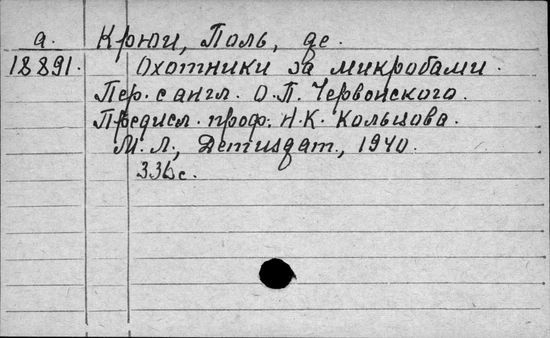 а. Крюи, Поль, де.
18891. Охотники за микробами.
Пер. с англ. О.П. Червонского.
Предисл. проф. Н.К. Кольцова.
М. Л., Детиздат, 1940.
336с.